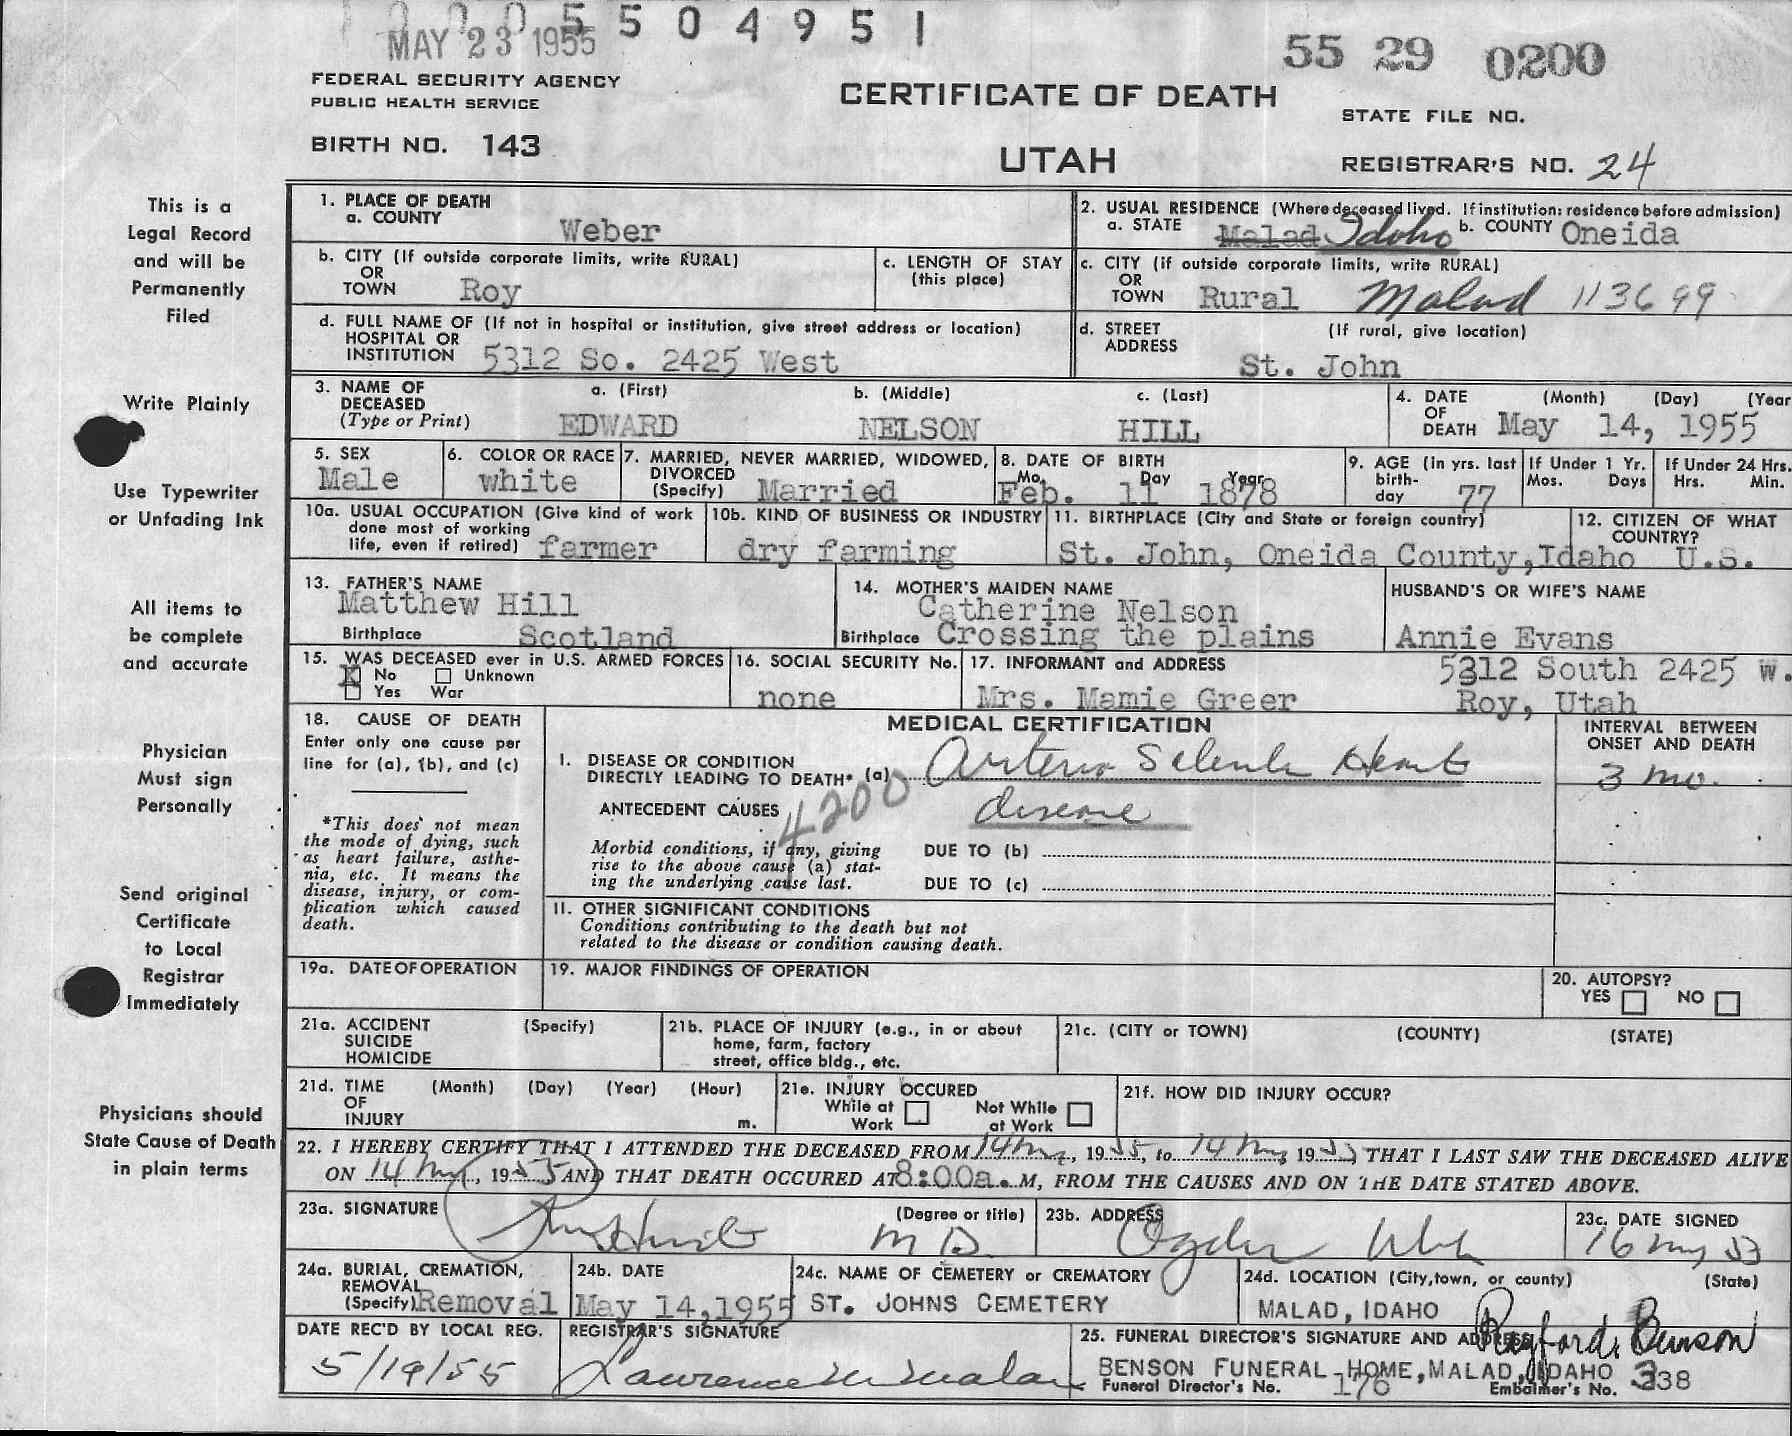 5504951
MAY 23 1955
55 29 0200
FEDERAL SECURITY AGENCY
PUBLIC HEALTH SERVICE
CERTIFICATE OF DEATH
STATE FILE NO.
BIRTH NO. 143
UTAH
REGISTRAR'S NO. 24
This is a
Legal Record
and will be
Permanently
Filed
Write Plainly
Use Typewriter
or Unfading Ink
All items to
be complete
and accurate
Physician
Must sign
Personally
Send original
Certificate
to Local
Registrar
Immediately
Physicians should
State Cause of Death
in plain terms
1. PLACE OF DEATH
a. COUNTY Weber
2. USUAL RESIDENCE (Where deceased lived. If institution: residence before admission)
a. STATE Malad Idaho b. COUNTY Oneida
b. CITY (If outside corporate limits, write RURAL)
OR
TOWN Roy
c. LENGTH OF STAY
(this place)
c. CITY (if outside corporate limits, write RURAL)
OR
TOWN Rural Malad 113699
d. FULL NAME OF (If not in hospital or institution, give street address or location)
HOSPITAL OR
INSTITUTION 5312 So. 2425 West
d. STREET (If rural, give location)
ADDRESS
St. John
3. NAME OF a. (First) b. (Middle) c. (Last)
DECEASED
(Type or Print) EDWARD NELSON HILL
4. DATE (Month) (Day) (Year
OF
DEATH May 14, 1955
5. SEX
Male
6. COLOR OR RACE
white
7. MARRIED, NEVER MARRIED, WIDOWED,
DIVORCED
(Specify) Married
8. DATE OF BIRTH
Mo. Day Year
Feb. 11 1878
9. AGE (in yrs. last
birth-
day 77
If Under 1 Yr.
Mos. Days
If Under 24 Hrs.
Hrs. Min.
10a. USUAL OCCUPATION (Give kind of work
done most of working
life, even if retired) farmer
10b. KIND OF BUSINESS OR INDUSTRY
dry farming
11. BIRTHPLACE (City and State or foreign country)
St. John, Oneida County, Idaho
12. CITIZEN OF WHAT
COUNTRY?
U.S.
13. FATHER'S NAME
Matthew Hill
Birthplace Scotland
14. MOTHER'S MAIDEN NAME
Catherine Nelson
Birthplace Crossing the plains
HUSBAND'S OR WIFE'S NAME
Annie Evans
15. WAS DECEASED ever in U.S. ARMED FORCES
X No Unknown
Yes War
16. SOCIAL SECURITY No.
none
17. INFORMANT and ADDRESS 5312 South 2425 W.
Mrs. Mamie Greer Roy, Utah
18. CAUSE OF DEATH
Enter only one cause per
line for (a), (b), and (c)
*This does not mean
the mode of dying, such
as heart failure, asthe-
nia, etc. It means the
disease, injury, or com-
plication which caused
death.
MEDICAL CERTIFICATION
INTERVAL BETWEEN
ONSET AND DEATH
I. DISEASE OR CONDITION
DIRECTLY LEADING TO DEATH* (a) Heart
3 mo.
ANTECEDENT CAUSES disease
4200
Morbid conditions, if any, giving
rise to the above cause (a) stat-
ing the underlying cause last.
DUE TO (b)
DUE TO (c)
II. OTHER SIGNIFICANT CONDITIONS
Conditions contributing to the death but not
related to the disease or condition causing death.
19a. DATE OF OPERATION
19. MAJOR FINDINGS OF OPERATION
20. AUTOPSY?
YES NO
21a. ACCIDENT (Specify)
SUICIDE
HOMICIDE
21b. PLACE OF INJURY (e.g., in or about
home, farm, factory
street, office bldg., etc.
21c. (CITY or TOWN) (COUNTY) (STATE)
21d. TIME (Month) (Day) (Year) (Hour)
OF
INJURY m.
21e. INJURY OCCURED
While at Not While
Work at Work
21f. HOW DID INJURY OCCUR?
22. I HEREBY CERTIFY THAT I ATTENDED THE DECEASED FROM 14 May, 1955, to 14 May 1955, THAT I LAST SAW THE DECEASED ALIVE
ON 14 May, 1955 AND THAT DEATH OCCURED AT 8:00a.M, FROM THE CAUSES AND ON THE DATE STATED ABOVE.
23a. SIGNATURE (Degree or title)
M D
23b. ADDRESS
Ogden Utah
23c. DATE SIGNED
16 May 55
24a. BURIAL, CREMATION,
REMOVAL
(Specify) Removal
24b. DATE
May 14, 1955
24c. NAME OF CEMETERY or CREMATORY
ST. JOHNS CEMETERY
24d. LOCATION (City, town, or county) (State)
MALAD, IDAHO
DATE REC'D BY LOCAL REG.
5/19/55
REGISTRAR'S SIGNATURE
Lawrence
25. FUNERAL DIRECTOR'S SIGNATURE AND ADDRESS Benson
BENSON FUNERAL HOME, MALAD, IDAHO
Funeral Director's No. 176 Embalmer's No. 338